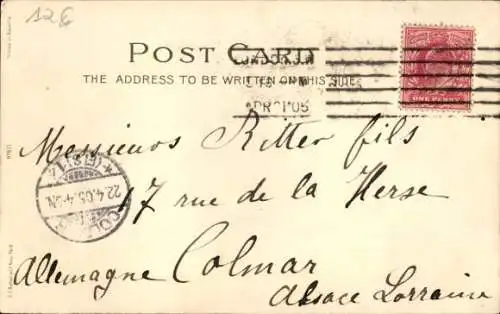 12€
POST CARD
THE ADDRESS TO BE WRITTEN ON THIS SIDE
LONDON.S.W
APR 21 05
ONE PENNY
Messieurs Ritter fils
17 rue de la Herse
Allemagne Colmar
Alsace Lorraine
22.4.05.
COL